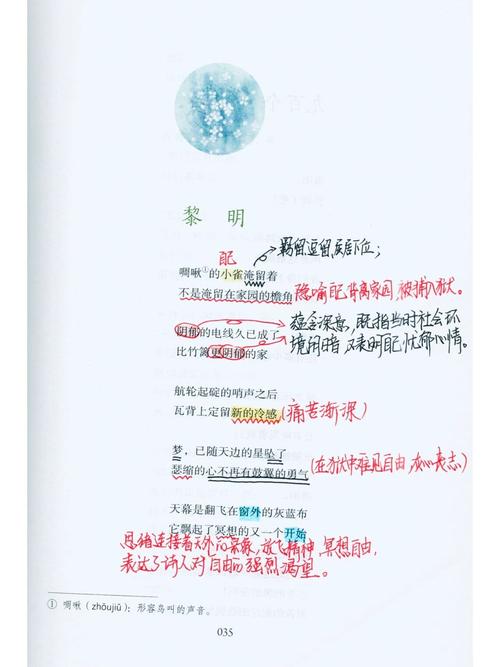 黎明
己
羁留逗留,屈居下位;
啁啾①的小雀淹留着
不是淹留在家园的檐角
隐喻自己背离家园 被捕入狱。
阴郁的电线久已成了
蕴含深意,既指当时社会环
比竹篱更阴郁的家
境闭暗 又表明自己忧郁心情。
航轮起碇的哨声之后
瓦背上定留新的冷感
(痛苦渐深)
梦,已随天边的星坠了
(在狱中难见自由,灰心丧志)
瑟缩的心不再有鼓翼的勇气
天幕是翻飞在窗外的灰蓝布
它飘起了冥想的又一个开始
思绪连接着天外的景象,放飞精神,冥想自由,
表达了诗人对自由的强烈渴望。
① 啁啾(zhōujiū):形容鸟叫的声音。
035